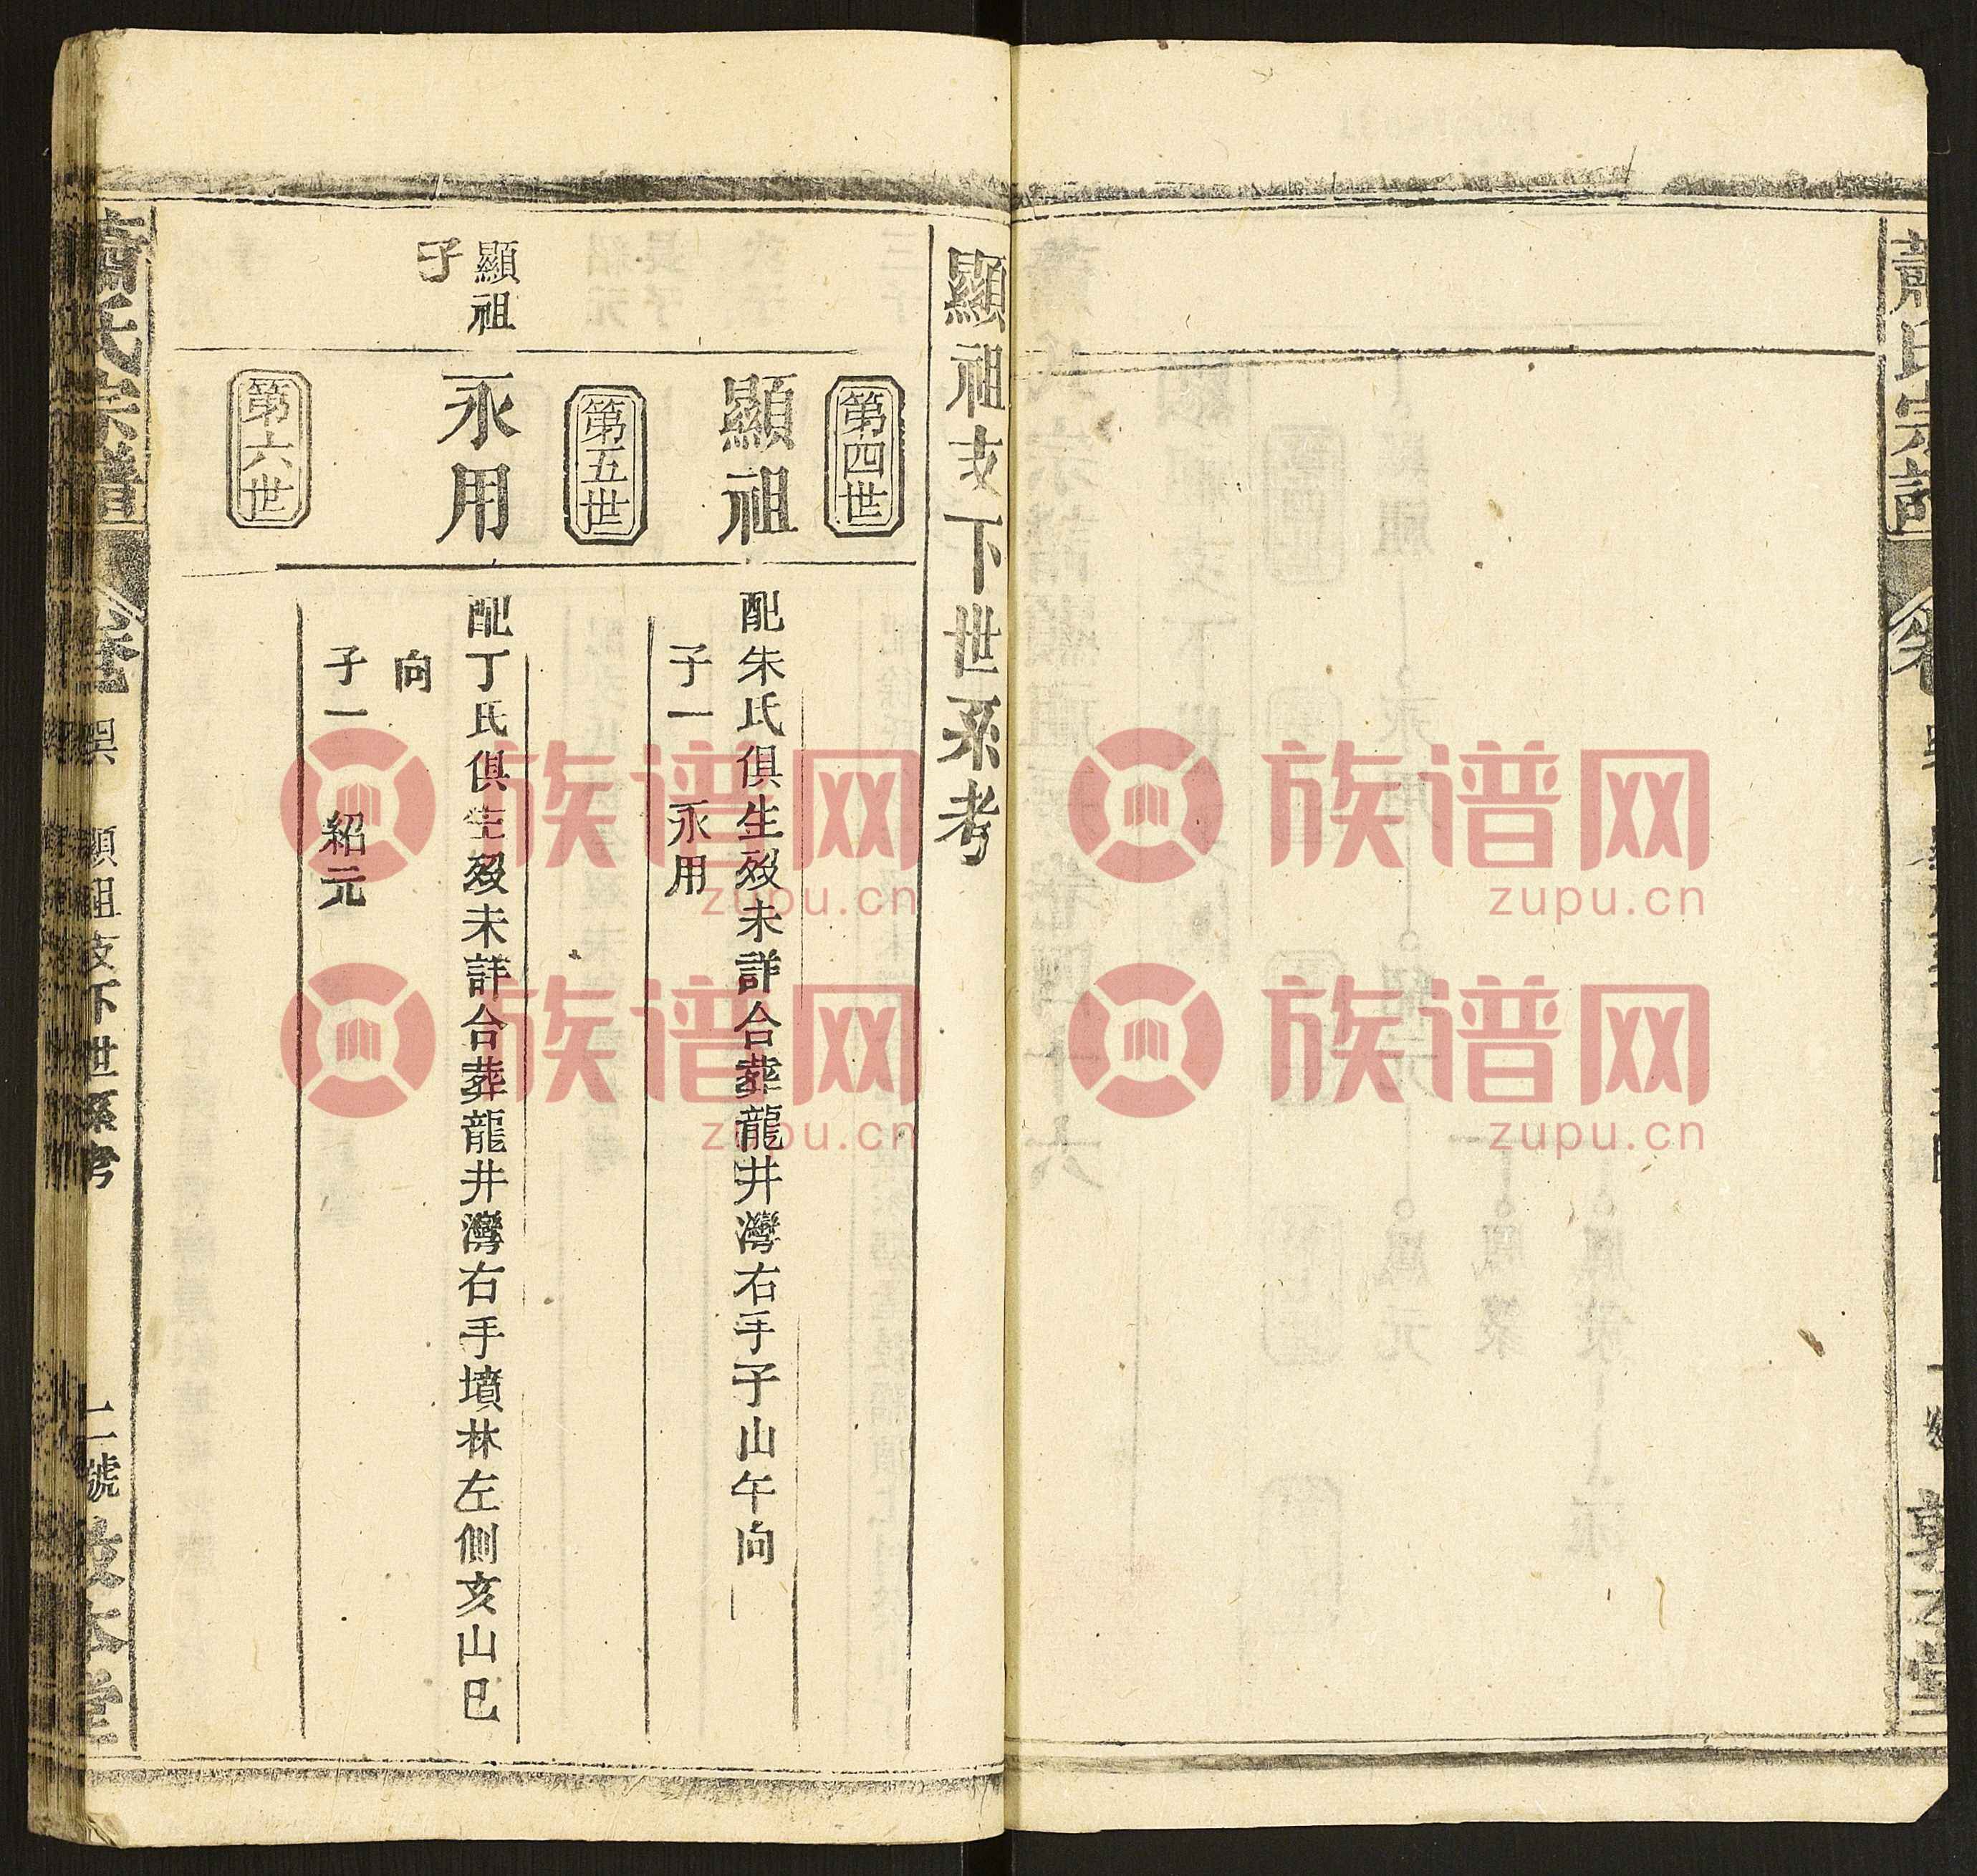 蕭氏宗譜
顯祖支下世系考
第四世
顯祖
配朱氏俱生歿未詳合葬龍井灣右手子山午向
子一 永用
第五世
顯祖
子
永用
配丁氏俱生歿未詳合葬龍井灣右手墳林左側亥山巳
向
子一 紹元
第六世
蕭氏宗譜 卷 顯祖支下世系考 二號 敦本堂
族谱网
zupu.cn
族谱网
zupu.cn
族谱网
zupu.cn
族谱网
zupu.cn